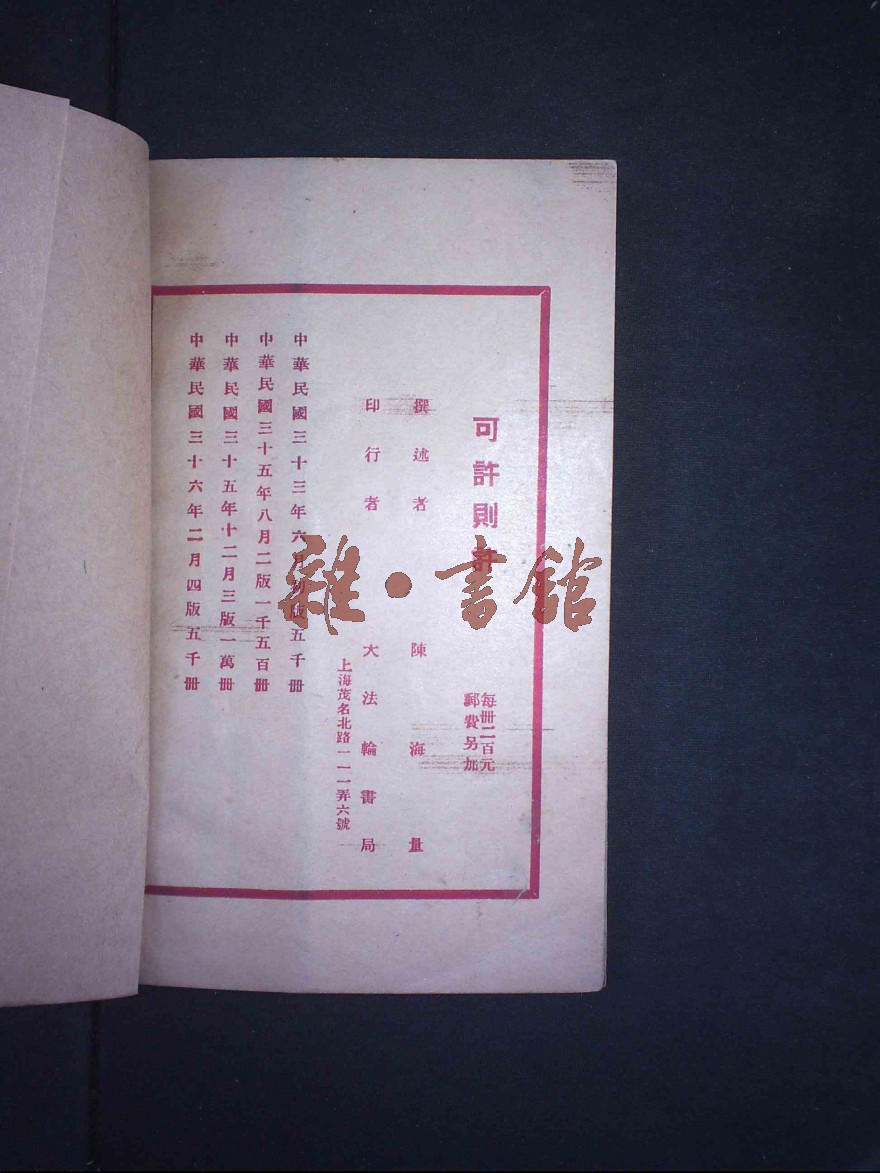 可許則許
每冊二百元
郵費另加
撰述者 陳海量
印行者 大法輪書局
上海茂名北路一一一弄六號
中華民國三十三年六月初版五千冊
中華民國三十五年八月二版一千五百冊
中華民國三十五年十二月三版一萬冊
中華民國三十六年二月四版五千冊
雜·書館